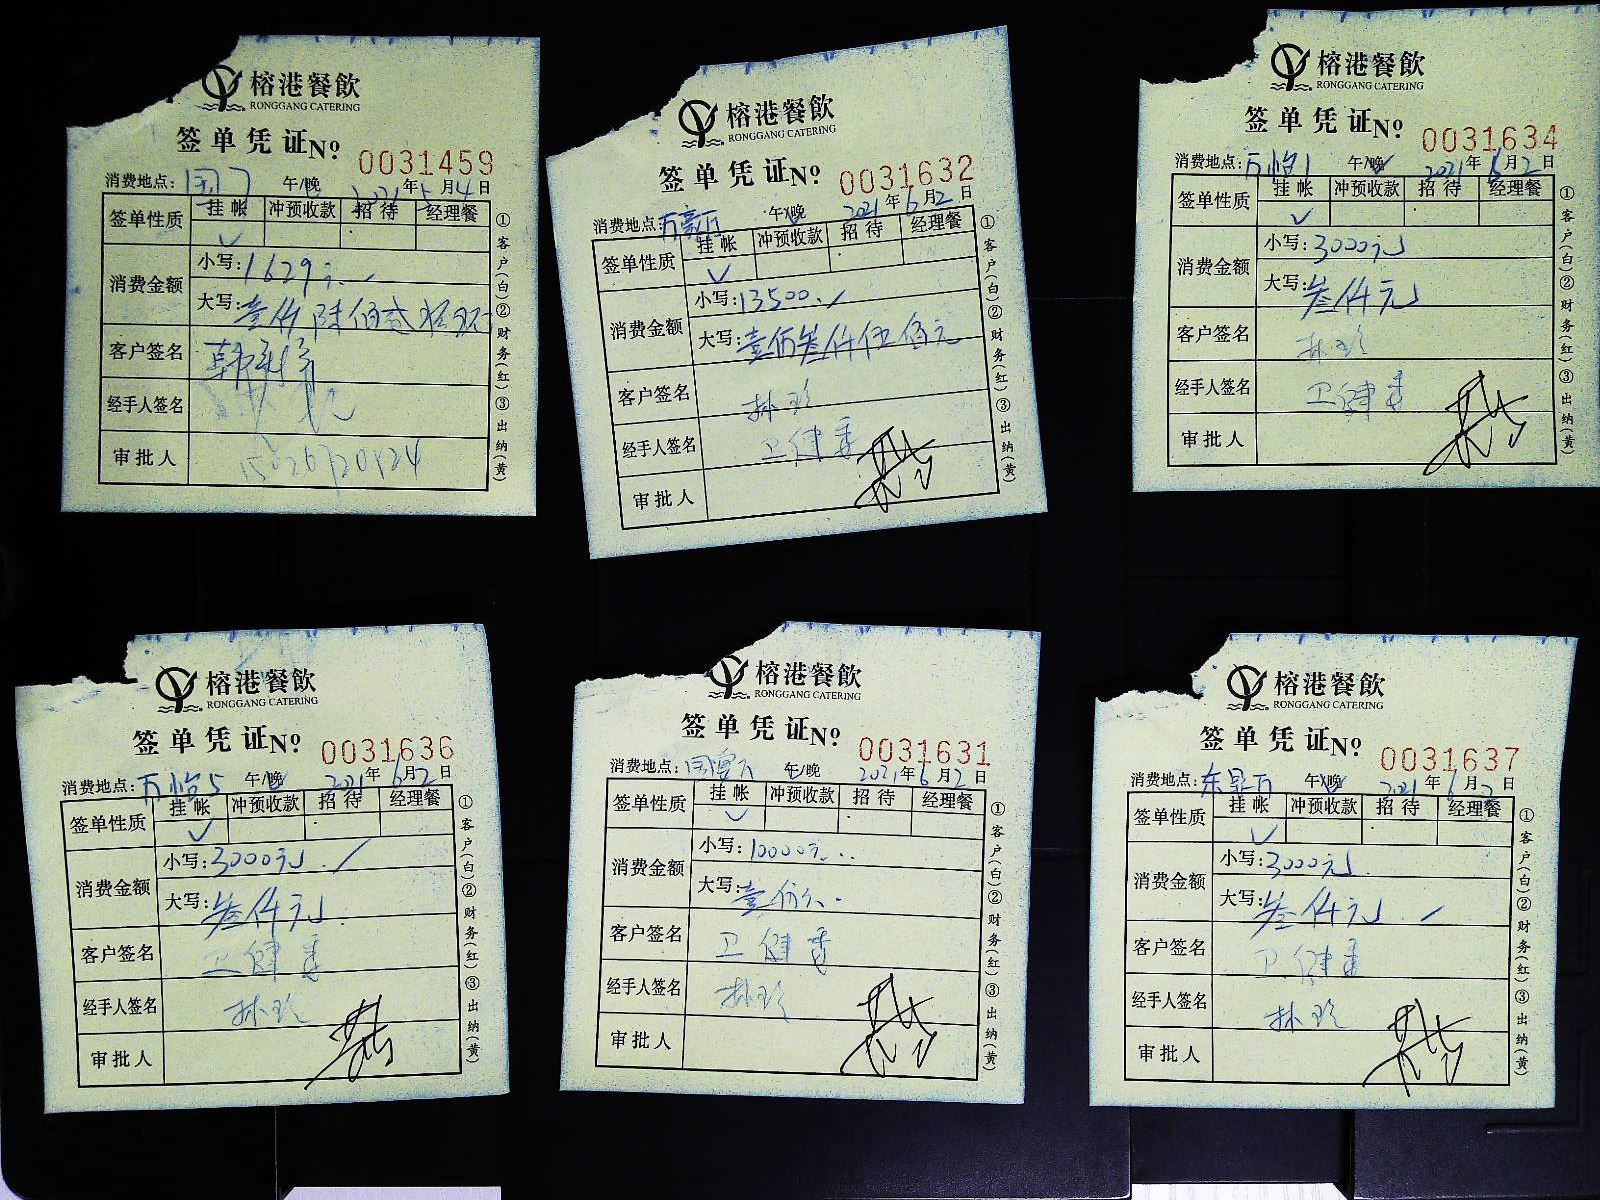 榕港餐飲
RONGGANG CATERING
签单凭证 No. 0031459
消费地点: 午/晚 2021年5月4日
签单性质 挂帐 冲预收款 招待 经理餐
✓
消费金额 小写:1629元
大写:壹仟陆佰贰拾玖元
客户签名
经手人签名
审批人
①客户(白)②财务(红)③出纳(黄)
榕港餐飲
RONGGANG CATERING
签单凭证 No. 0031632
消费地点:万豪 午/晚 2021年6月2日
签单性质 挂帐 冲预收款 招待 经理餐
✓
消费金额 小写:13500
大写:壹万叁仟伍佰元
客户签名 孙珍
经手人签名 卫健委
审批人
①客户(白)②财务(红)③出纳(黄)
榕港餐飲
RONGGANG CATERING
签单凭证 No. 0031634
消费地点:万怡1 午/晚 2021年6月2日
签单性质 挂帐 冲预收款 招待 经理餐
✓
消费金额 小写:3000元
大写:叁仟元
客户签名 孙珍
经手人签名 卫健委
审批人
①客户(白)②财务(红)③出纳(黄)
榕港餐飲
RONGGANG CATERING
签单凭证 No. 0031636
消费地点:万怡5 午/晚 2021年6月2日
签单性质 挂帐 冲预收款 招待 经理餐
✓
消费金额 小写:3000元
大写:叁仟元
客户签名 卫健委
经手人签名 孙珍
审批人
①客户(白)②财务(红)③出纳(黄)
榕港餐飲
RONGGANG CATERING
签单凭证 No. 0031631
消费地点:国宴 午/晚 2021年6月2日
签单性质 挂帐 冲预收款 招待 经理餐
✓
消费金额 小写:10000元
大写:壹万元
客户签名 卫健委
经手人签名 孙珍
审批人
①客户(白)②财务(红)③出纳(黄)
榕港餐飲
RONGGANG CATERING
签单凭证 No. 0031637
消费地点: 午/晚 2021年6月2日
签单性质 挂帐 冲预收款 招待 经理餐
✓
消费金额 小写:3000元
大写:叁仟元
客户签名 卫健委
经手人签名 孙珍
审批人
①客户(白)②财务(红)③出纳(黄)